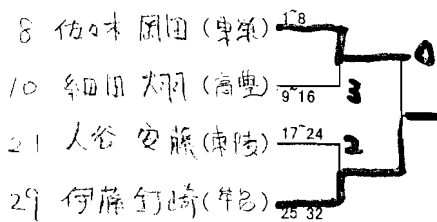 8 佐々木 岡田 (東栄) 1~8
0
10 細田 大羽 (高豊) 9~16
3
21 人谷 安藤 (東陵) 17~24
2
29 伊藤 釘崎 25 32